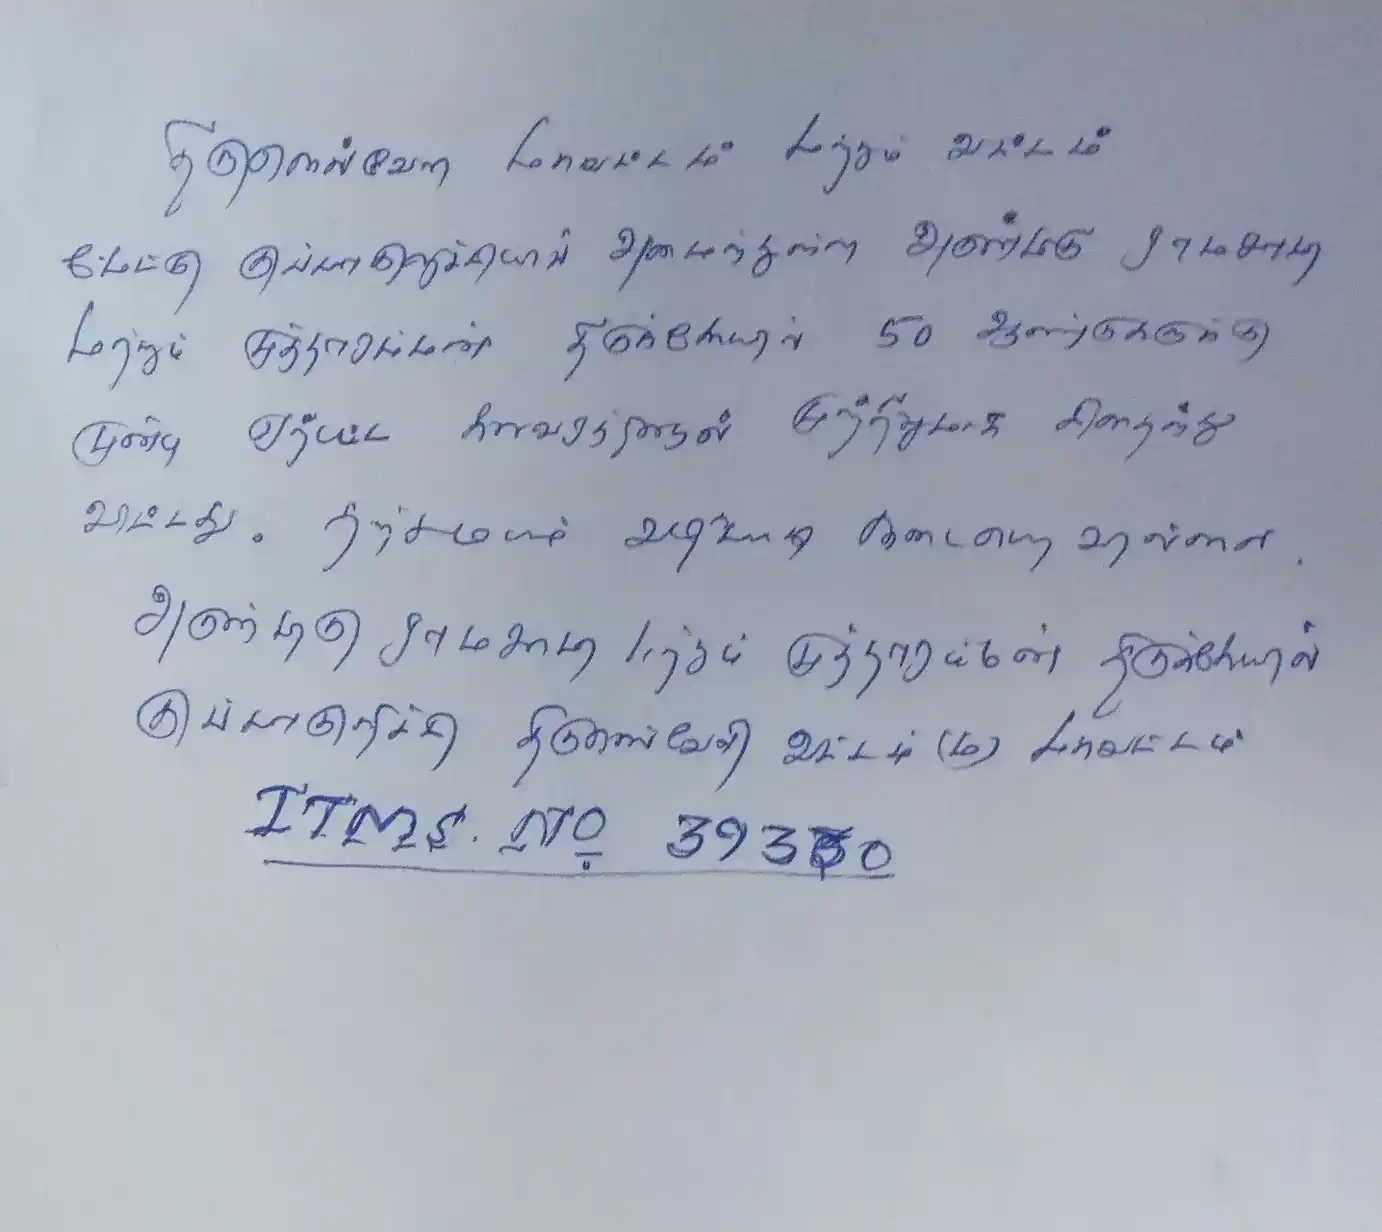 திருநெல்வேலி மாவட்டம் மற்றும் வட்டம்
மேட்டு குப்பகுறிச்சியில் அமைந்துள்ள அருள்மிகு ராமசாமி
மற்றும் முத்தாரம்மன் திருக்கோயில் 50 ஆண்டுகளுக்கு
முன்பு ஏற்பட்ட கலவரத்தினால் முற்றிலுமாக சிதைந்து
விட்டது. தற்சமயம் வழிபாடு நடைபெறவில்லை.
அருள்மிகு ராமசாமி மற்றும் முத்தாரம்மன் திருக்கோயில்
குப்பகுறிச்சி திருநெல்வேலி வட்டம் (ம) மாவட்டம்
ITMS. No 39330